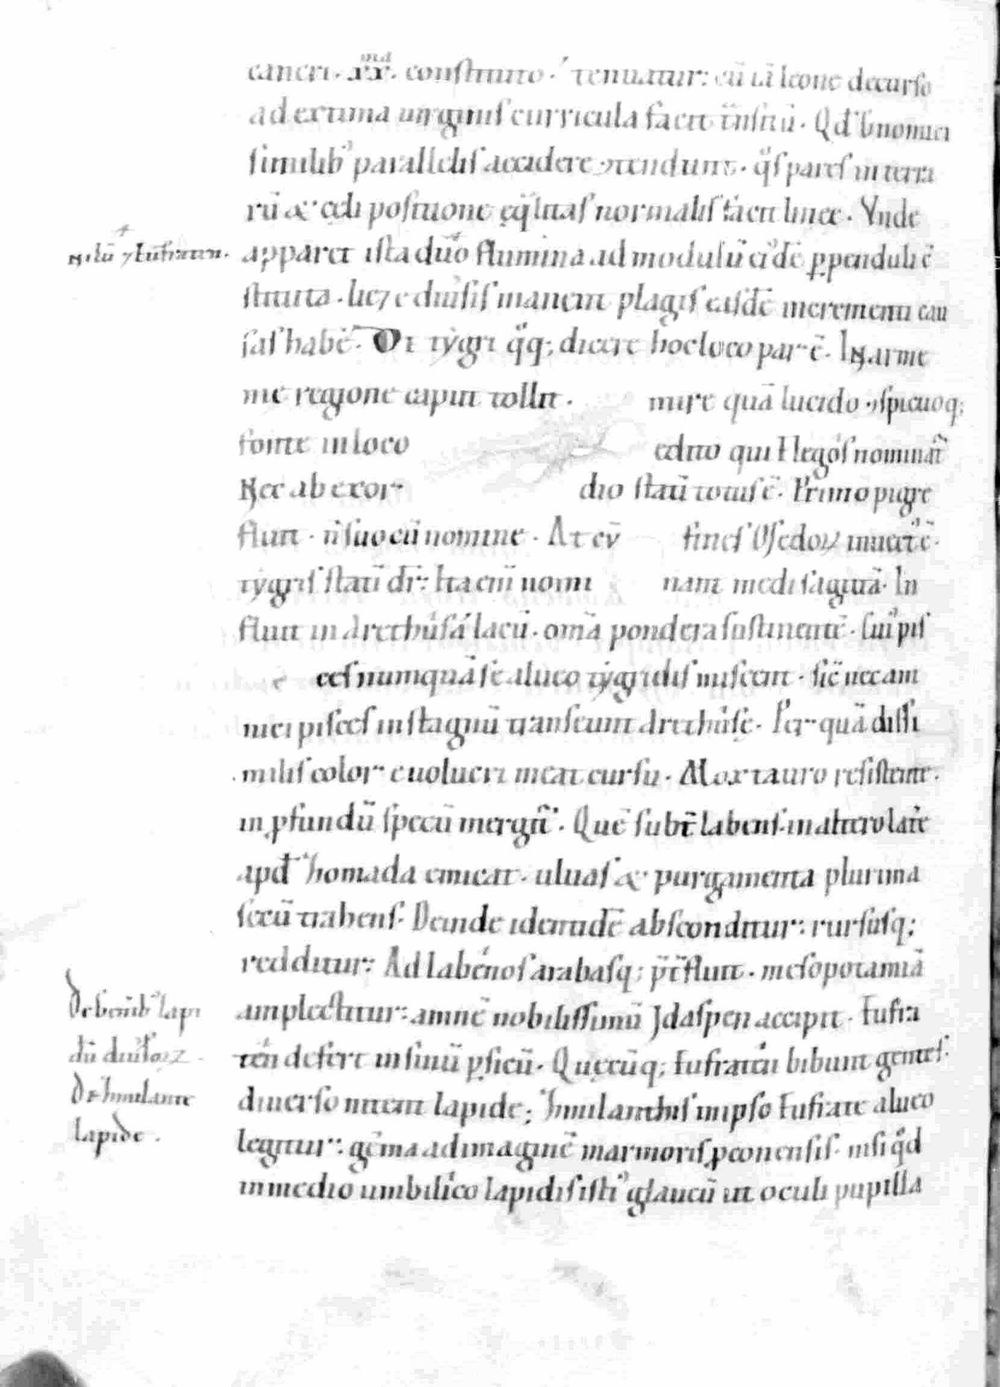 cancri . xx^ma . constituto . tenuatur: cū tā leone decurso
ad extima uirginis curricula facit t̄nsitū . Qd̄ gnomici
similib; parallelis accidere ꝯtendunt . q̊s pares in terra
rū & celi positione ęq̄litas normalis facit lineę . Vnde
nilū ⁊ Eufraten .
apparet ista duo flumina ad modulū eiꝰdē ꝑpendiculi
stituta . lic& e diuisis manent plagis easdē incrementi cau
sas habē . De tygri q̊q; dicere hoc loco par ē . In arme
nie regione caput tollit . mire quā lucido ꝯspicuoq;
fonte in loco edito qui Helegos nominat̄
Nec ab exor dio statī totus ē . Primo pigre
fluit . n̄ suo cū nomine . At cū fines
tygris statī dr̄: Ita enī nomi nant medi sagittā . In
fluit in Arethusā lacū . om̄a pondera sustinentē . cuiꝰ pis
ces numquā se alueo tygridis miscent . sic̄ nec am
nici pisces in stagnū transeunt Arethusę . Per quā dissi
milis color e uolucri meat cursu . Mox tauro resistente .
in ꝓfundū specū mergit̄ . Quē subt̄ labens . in altero latere
apd̄ homada emicat . uluas & purgamenta plurima
secū trahens . Deinde identidē absconditur: rursusq;
redditur: Adiabenos arabasq; p̄t̄fluit . mesopotamiā
amplectitur: amnē nobilissimū Jdaspen accipit . Eufra
ten defert in sinū ꝑsicū . Quęcūq; Eufraten bibunt gentes .
diuerso nitent lapide; hmilanthis in ipso Eufrate alueo
legitur: gēma ad imaginē marmoris ꝓconensis . nisi q̊d
in medio umbilico lapidis istiꝰ glaucū ut oculi pupilla
De genib; lapi
dū diuisoꝝ .
De hmilante
lapide .